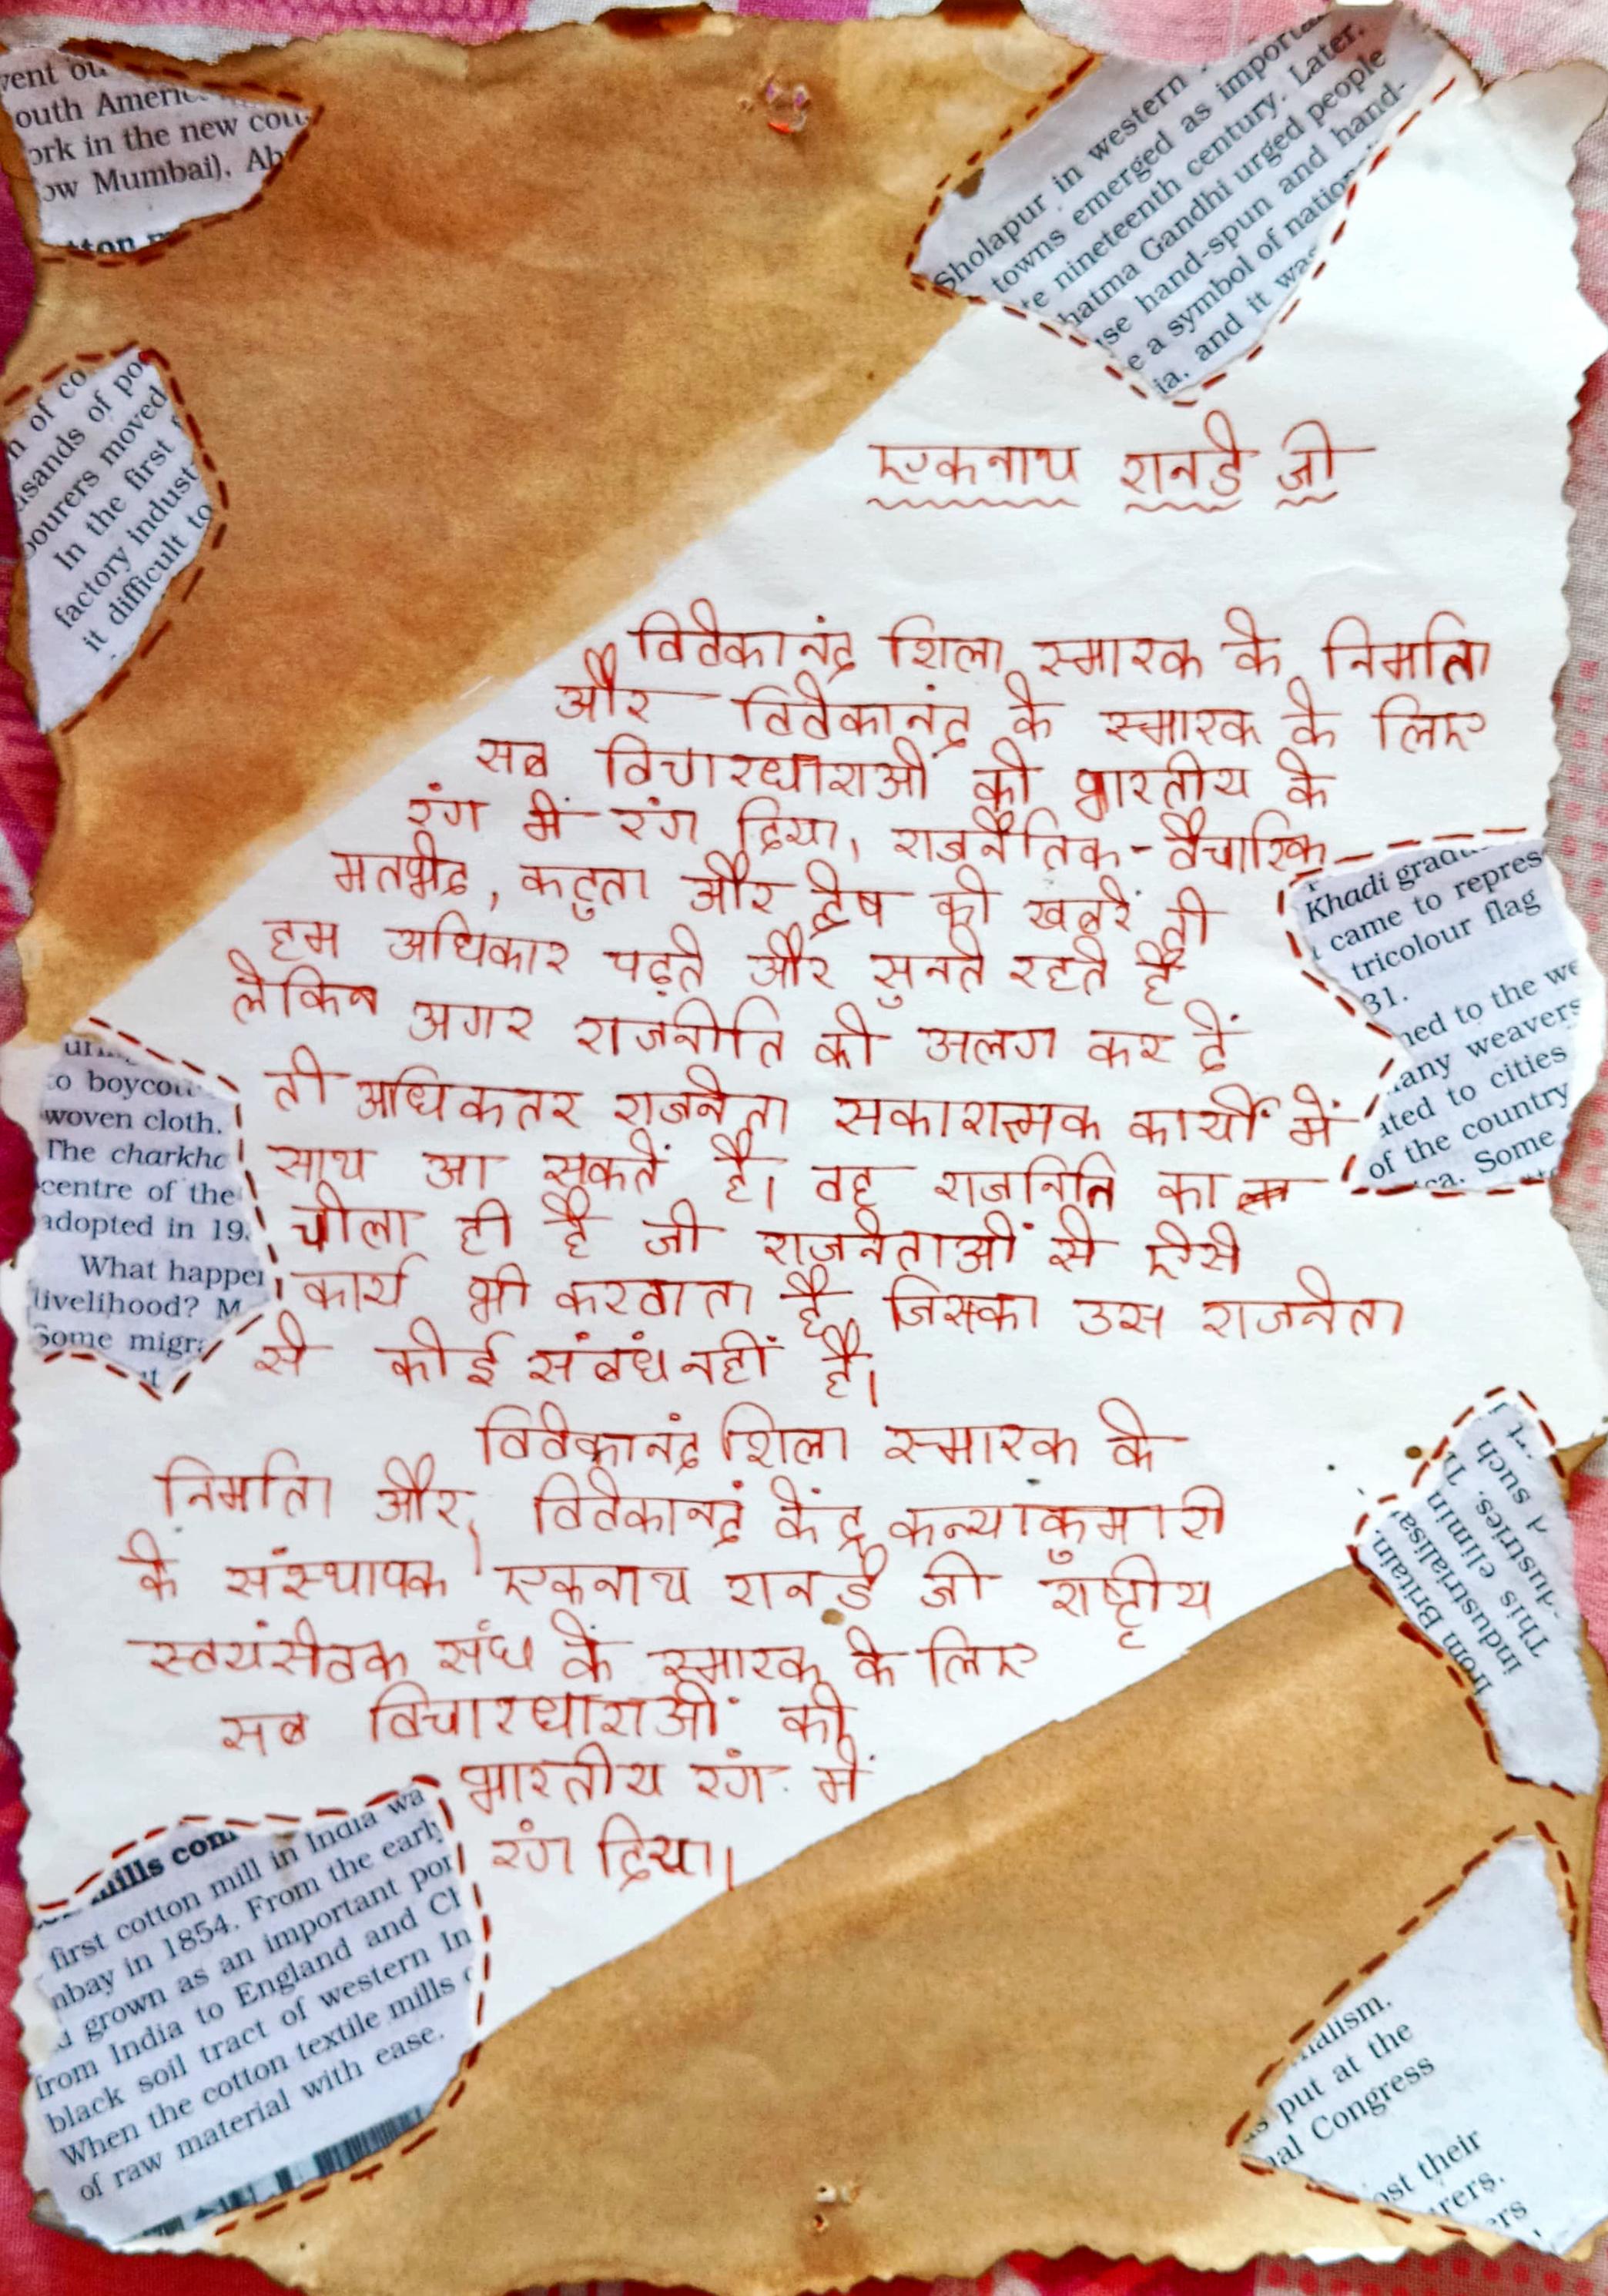 vent ou
outh Americ
ork in the new cott
ow Mumbai). Ab
tton m
Sholapur in western
towns emerged as importa
te nineteenth century. Later,
hatma Gandhi urged people
use hand-spun and hand-
e a symbol of nation
ia. and it was
n of co
usands of poo
bourers moved
In the first f
factory indust
it difficult to
एकनाथ रानडे जी
विवेकानंद शिला स्मारक के निर्माता
और विवेकानंद के स्मारक के लिए
सब विचारधाराओं को भारतीय के
रंग में रंग दिया, राजनैतिक-वैचारिक
मतभेद, कटुता और द्वेष की खबरें तो
हम अधिकार पढ़ते और सुनते रहते हैं
लेकिन अगर राजनीति को अलग कर दें
तो अधिकतर राजनेता सकारात्मक कार्यों में
साथ आ सकतें है। वह राजनिति का
चोला ही है जो राजनेताओं से ऐसे
कार्य भी करवाता है जिसका उस राजनेता
से कोई संबंध नहीं है।
विवेकानंद शिला स्मारक के
निर्माता और, विवेकानंद केंद्र कन्याकुमारी
के संस्थापक एकनाथ रानडे जी राष्ट्रीय
स्वयंसेवक संघ के स्मारक के लिए
सब विचारधाराओं को
भारतीय रंग में
रंग दिया।
Khadi gradu
came to repres
tricolour flag
31.
ned to the we
any weavers
ated to cities
of the country
ica. Some
to boycott
woven cloth.
The charkha
centre of the
adopted in 19
What happen
livelihood? M
Some migra
from Britain.
industrialisa
This elimin
dustries. T
d such
mills com
first cotton mill in India wa
mbay in 1854. From the early
d grown as an important por
from India to England and Ch
black soil tract of western In
When the cotton textile mills c
of raw material with ease.
nalism.
as put at the
nal Congress
ost their
urers.
ers